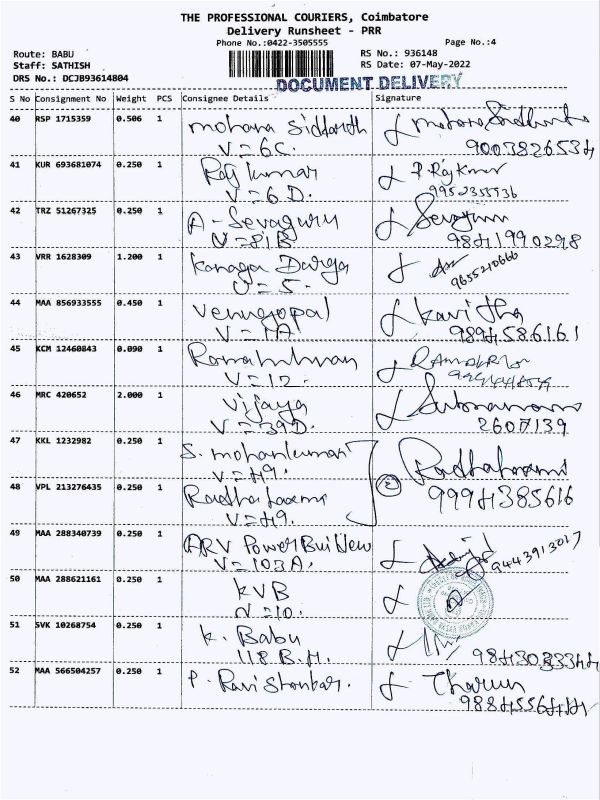 THE PROFESSIONAL COURIERS, Coimbatore
Delivery Runsheet - PRR
Phone No.:0422-3505555
Page No.:4
Route: BABU
RS No.: 936148
Staff: SATHISH
RS Date: 07-May-2022
DRS No.: DCJB93614804
DOCUMENT DELIVERY
S No Consignment No Weight PCS Consignee Details Signature
40 RSP 1715359 0.506 1 mohana Siddardh
V=6C. 9003826534
41 KUR 693681074 0.250 1 Raj kumar P Raj Kumar
V=6D. 9952355936
42 TRZ 51267325 0.250 1 A-Sevaguru
V=81B 9841990298
43 VRR 1628309 1.200 1 Kanaga Darga
V=5. 9655210666
44 MAA 856933555 0.450 1 Venugopal Kavitha
V=1A 9894586161
45 KCM 12460843 0.090 1
V=12.
46 MRC 420652 2.000 1 Vijaya
V=39D. 2607139
47 KKL 1232982 0.250 1 S. mohankumar
V=49.
48 VPL 213276435 0.250 1 Radha Laxmi
V=49. 9994385616
49 MAA 288340739 0.250 1 ARV Power
V=103A. 9443913017
50 MAA 288621161 0.250 1 KVB
V=10.
51 SVK 10268754 0.250 1 K. Babu
118 B.H.
52 MAA 566504257 0.250 1 P. Ravi Shankar. Tharun